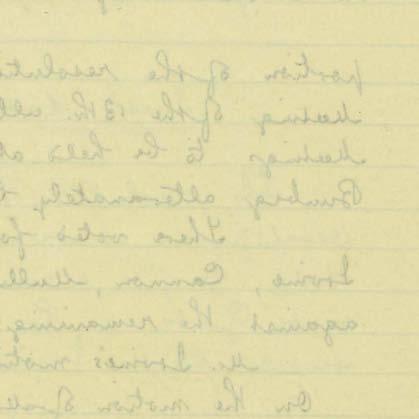 portion of the resoluti
Meeting of the 13th. ul
Meetings to be held a
alternately
There voted fo
Irvine, Cannon, Mull
against the remaining
Mr. Irvine's moti
On the motion of